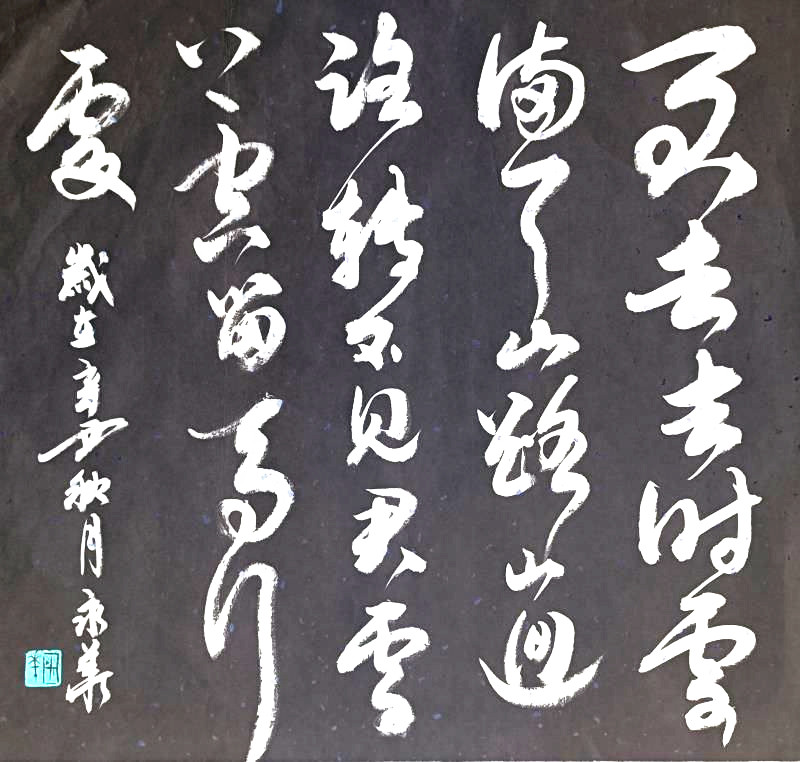 君去去时雪
满天山路山迴
路轉不见君雪
上空留马行
處 歲在辛丑秋月 永華